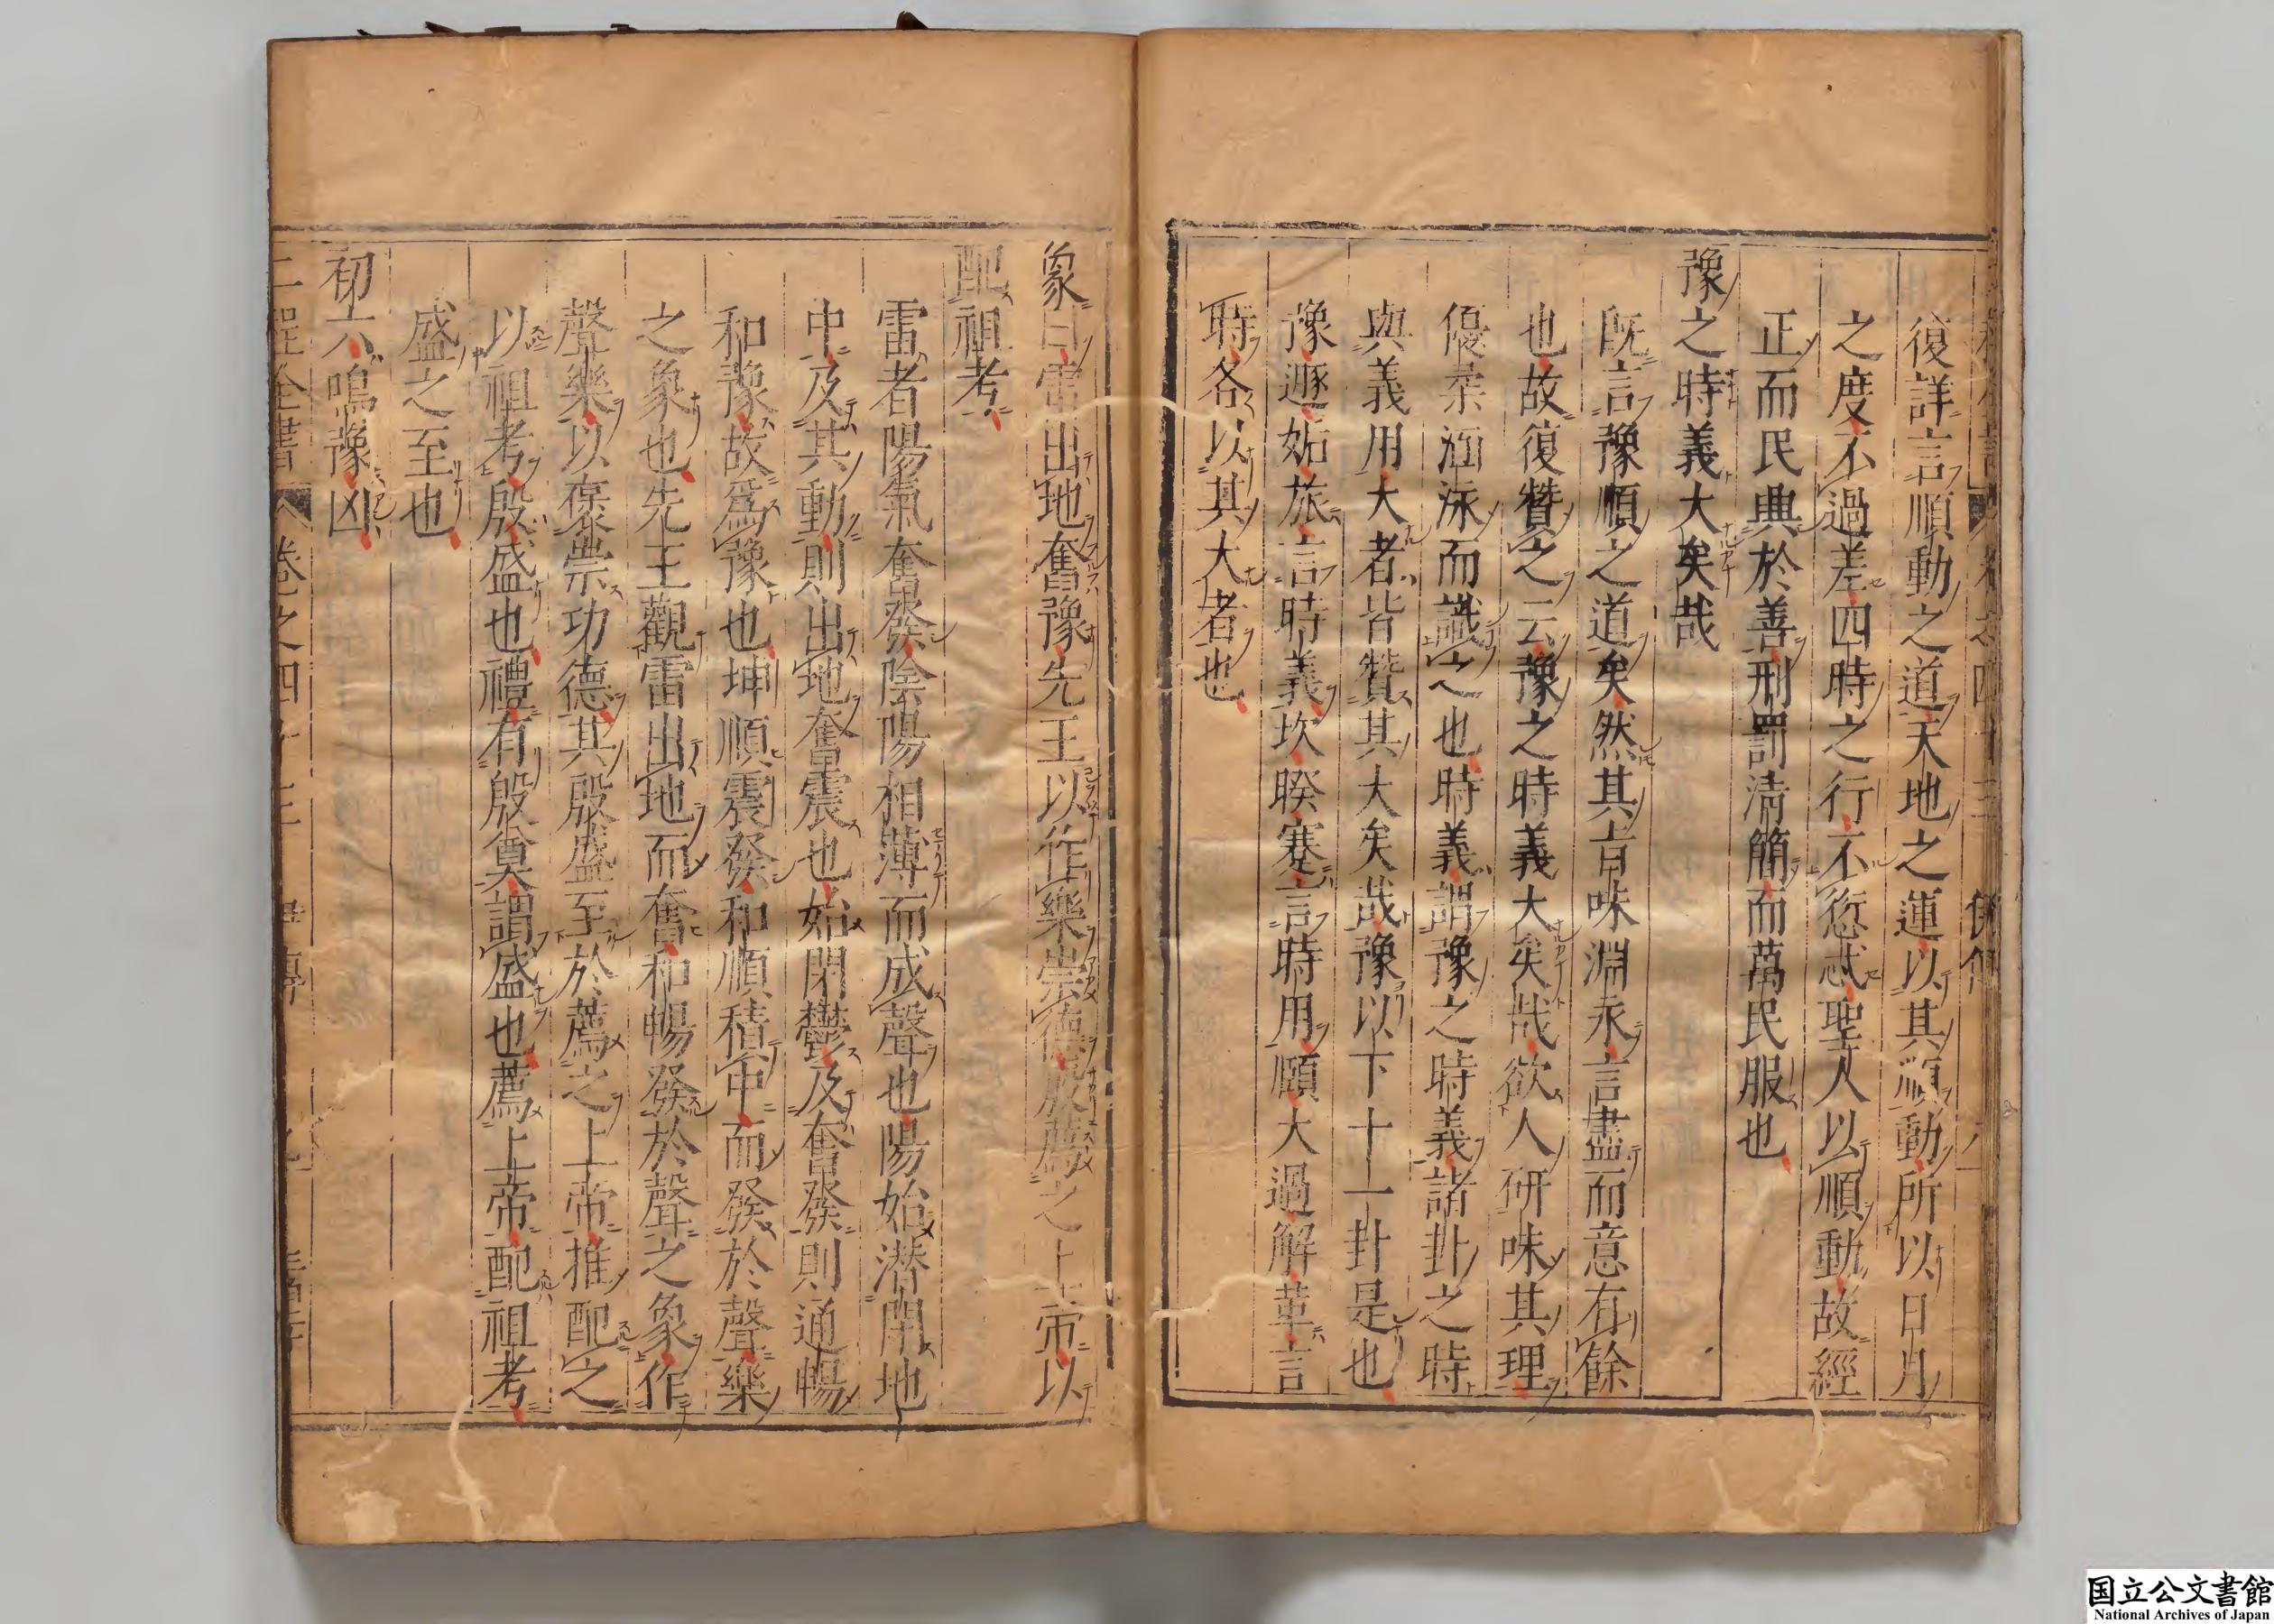 復詳言順動之道天地之運以其順動所以日月
之度不過差四時之行不愆忒聖人以順動故經
正而民興於善刑罰清簡而萬民服也
豫之時義大矣哉
既言豫順之道矣然其旨味淵永言盡而意有餘
也故復贊之云豫之時義大矣哉欲人研味其理
優柔涵泳而識之也時義謂豫之時義諸卦之時
與義用大者皆贊其大矣哉豫以下十一卦是也
豫遯姤旅言時義坎睽蹇言時用頤大過解革言
時各以其大者也
象曰雷出地奮豫先王以作樂崇德殷薦之上帝以
配祖考
雷者陽氣奮發陰陽相薄而成聲也陽始潜閉地
中及其動則出地奮震也始閉鬱及奮發則通暢
和豫故爲豫也坤順震發和順積中而發於聲樂
之象也先王觀雷出地而奮和暢發於聲之象作
聲樂以褒崇功德其殷盛至於薦之上帝推配之
以祖考殷盛也禮有殷奠謂盛也薦上帝配祖考
盛之至也
初六鳴豫凶
二程全書 卷之四十三
国立公文書館
National Archives of Japan